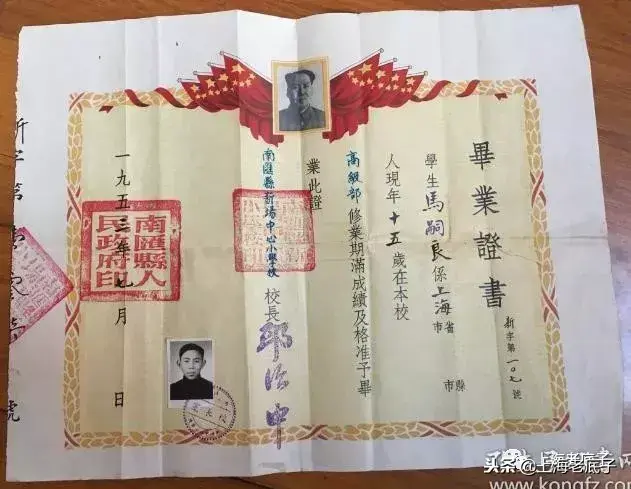 畢業證書
新字第一〇七號
學生馬嗣良係上海省市縣市
人現年十五歲在本校
高級部修業期滿成績及格准予畢
業此證
南匯縣新場中心小學校校長
一九五三年七月 日
南匯縣人民政府印
新字第 號
上海老底子
www.kongfz.